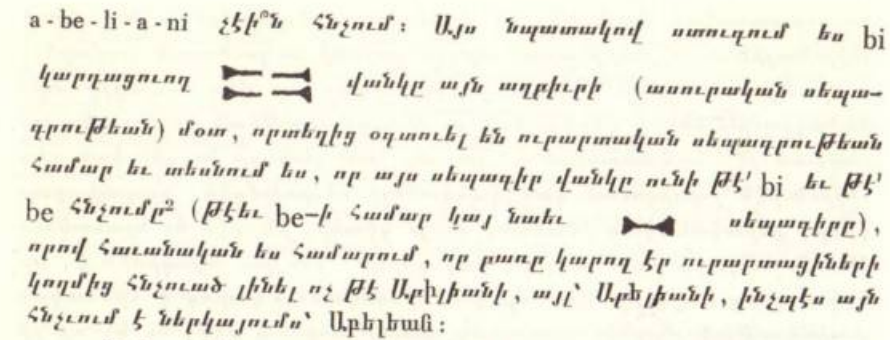 a - be - li - a - ni չէի՞ն հնչում: Այս նպատակով ստուգում ես bi
կարդացուող վանկը այն աղբիւրի (ասուրական սեպա-
գրութեան) մօտ, որտեղից օգտուել են ուրարտական սեպագրութեան
համար եւ տեսնում ես, որ այս սեպագիր վանկը ունի թէ՛ bi եւ թէ՛
be հնչումը² (թէեւ be–ի համար կայ նաեւ սեպագիրը),
որով հաւանական ես համարում, որ բառը կարող էր ուրարտացիների
կողմից հնչուած լինել ոչ թէ Աբիլիանի, այլ՝ Աբելիանի, ինչպէս այն
հնչում է ներկայումս՝ Աբեղեան: